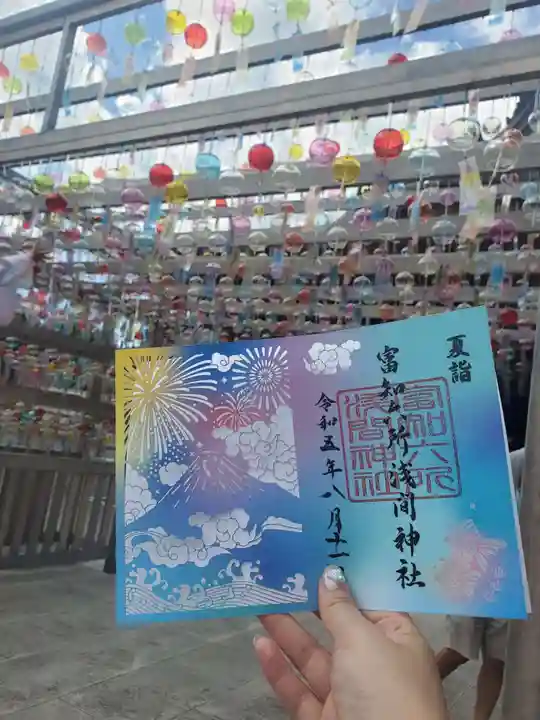 夏詣
富知六所浅間神社
富知六所
浅間神社
令和五年八月十一